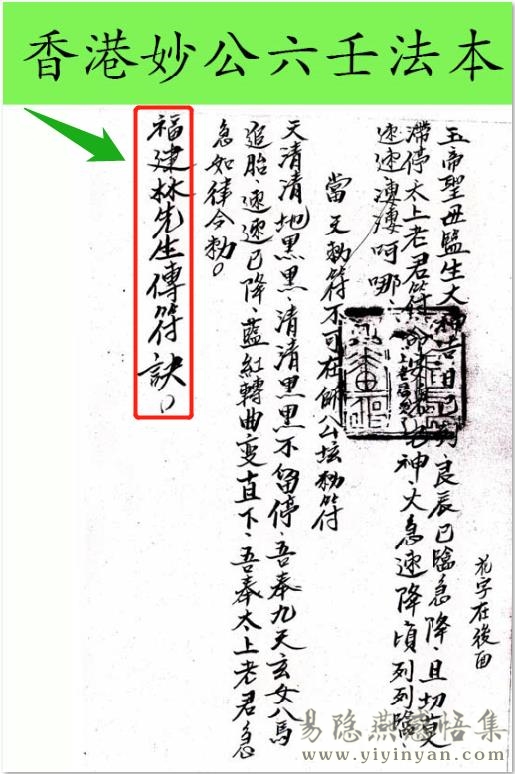 香港妙公六壬法本
花字在後面
玉帝聖毋監生大神吉日已到良辰已臨急降、且切莫
滯停太上老君符命安神、火急速降頃列列臨、
速速呵哪、
當天勅符不可在師公坛勅符
天清清地黑黑、清清黑黑不留停、吾奉九天玄女八馬
追胎、速速已降、藍紅轉曲变直下、吾奉太上老君急
急如律令勅。
福建林先生傳符訣。
易隐燕感悟集
www.yiyinyan.com